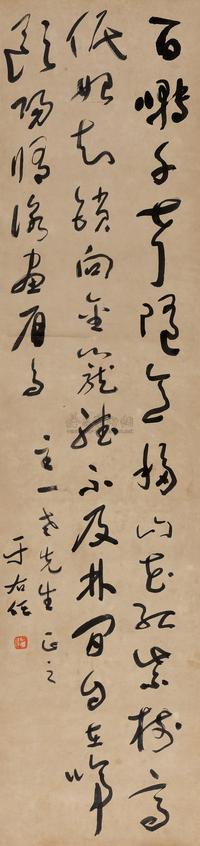 百囀千聲隨意移山花紅紫樹高
低始知鎖向金籠聽不及林間自在啼
歐陽脩詠畫眉鳥
主一老先生正之
于右任